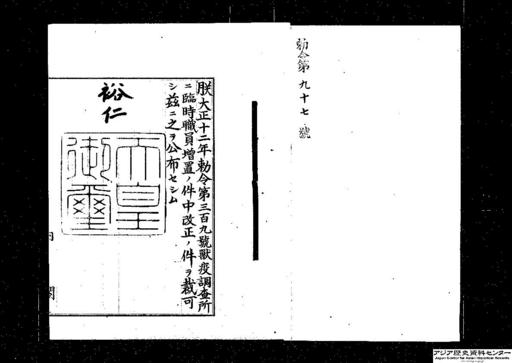 勅令第九十七號
朕大正十二年勅令第三百九號獸疫調査所
ニ臨時職員增置ノ件中改正ノ件ヲ裁可
シ玆ニ之ヲ公布セシム
裕仁
天皇
御璽
内閣
アジア歴史資料センター
Japan Center for Asian Historical Records